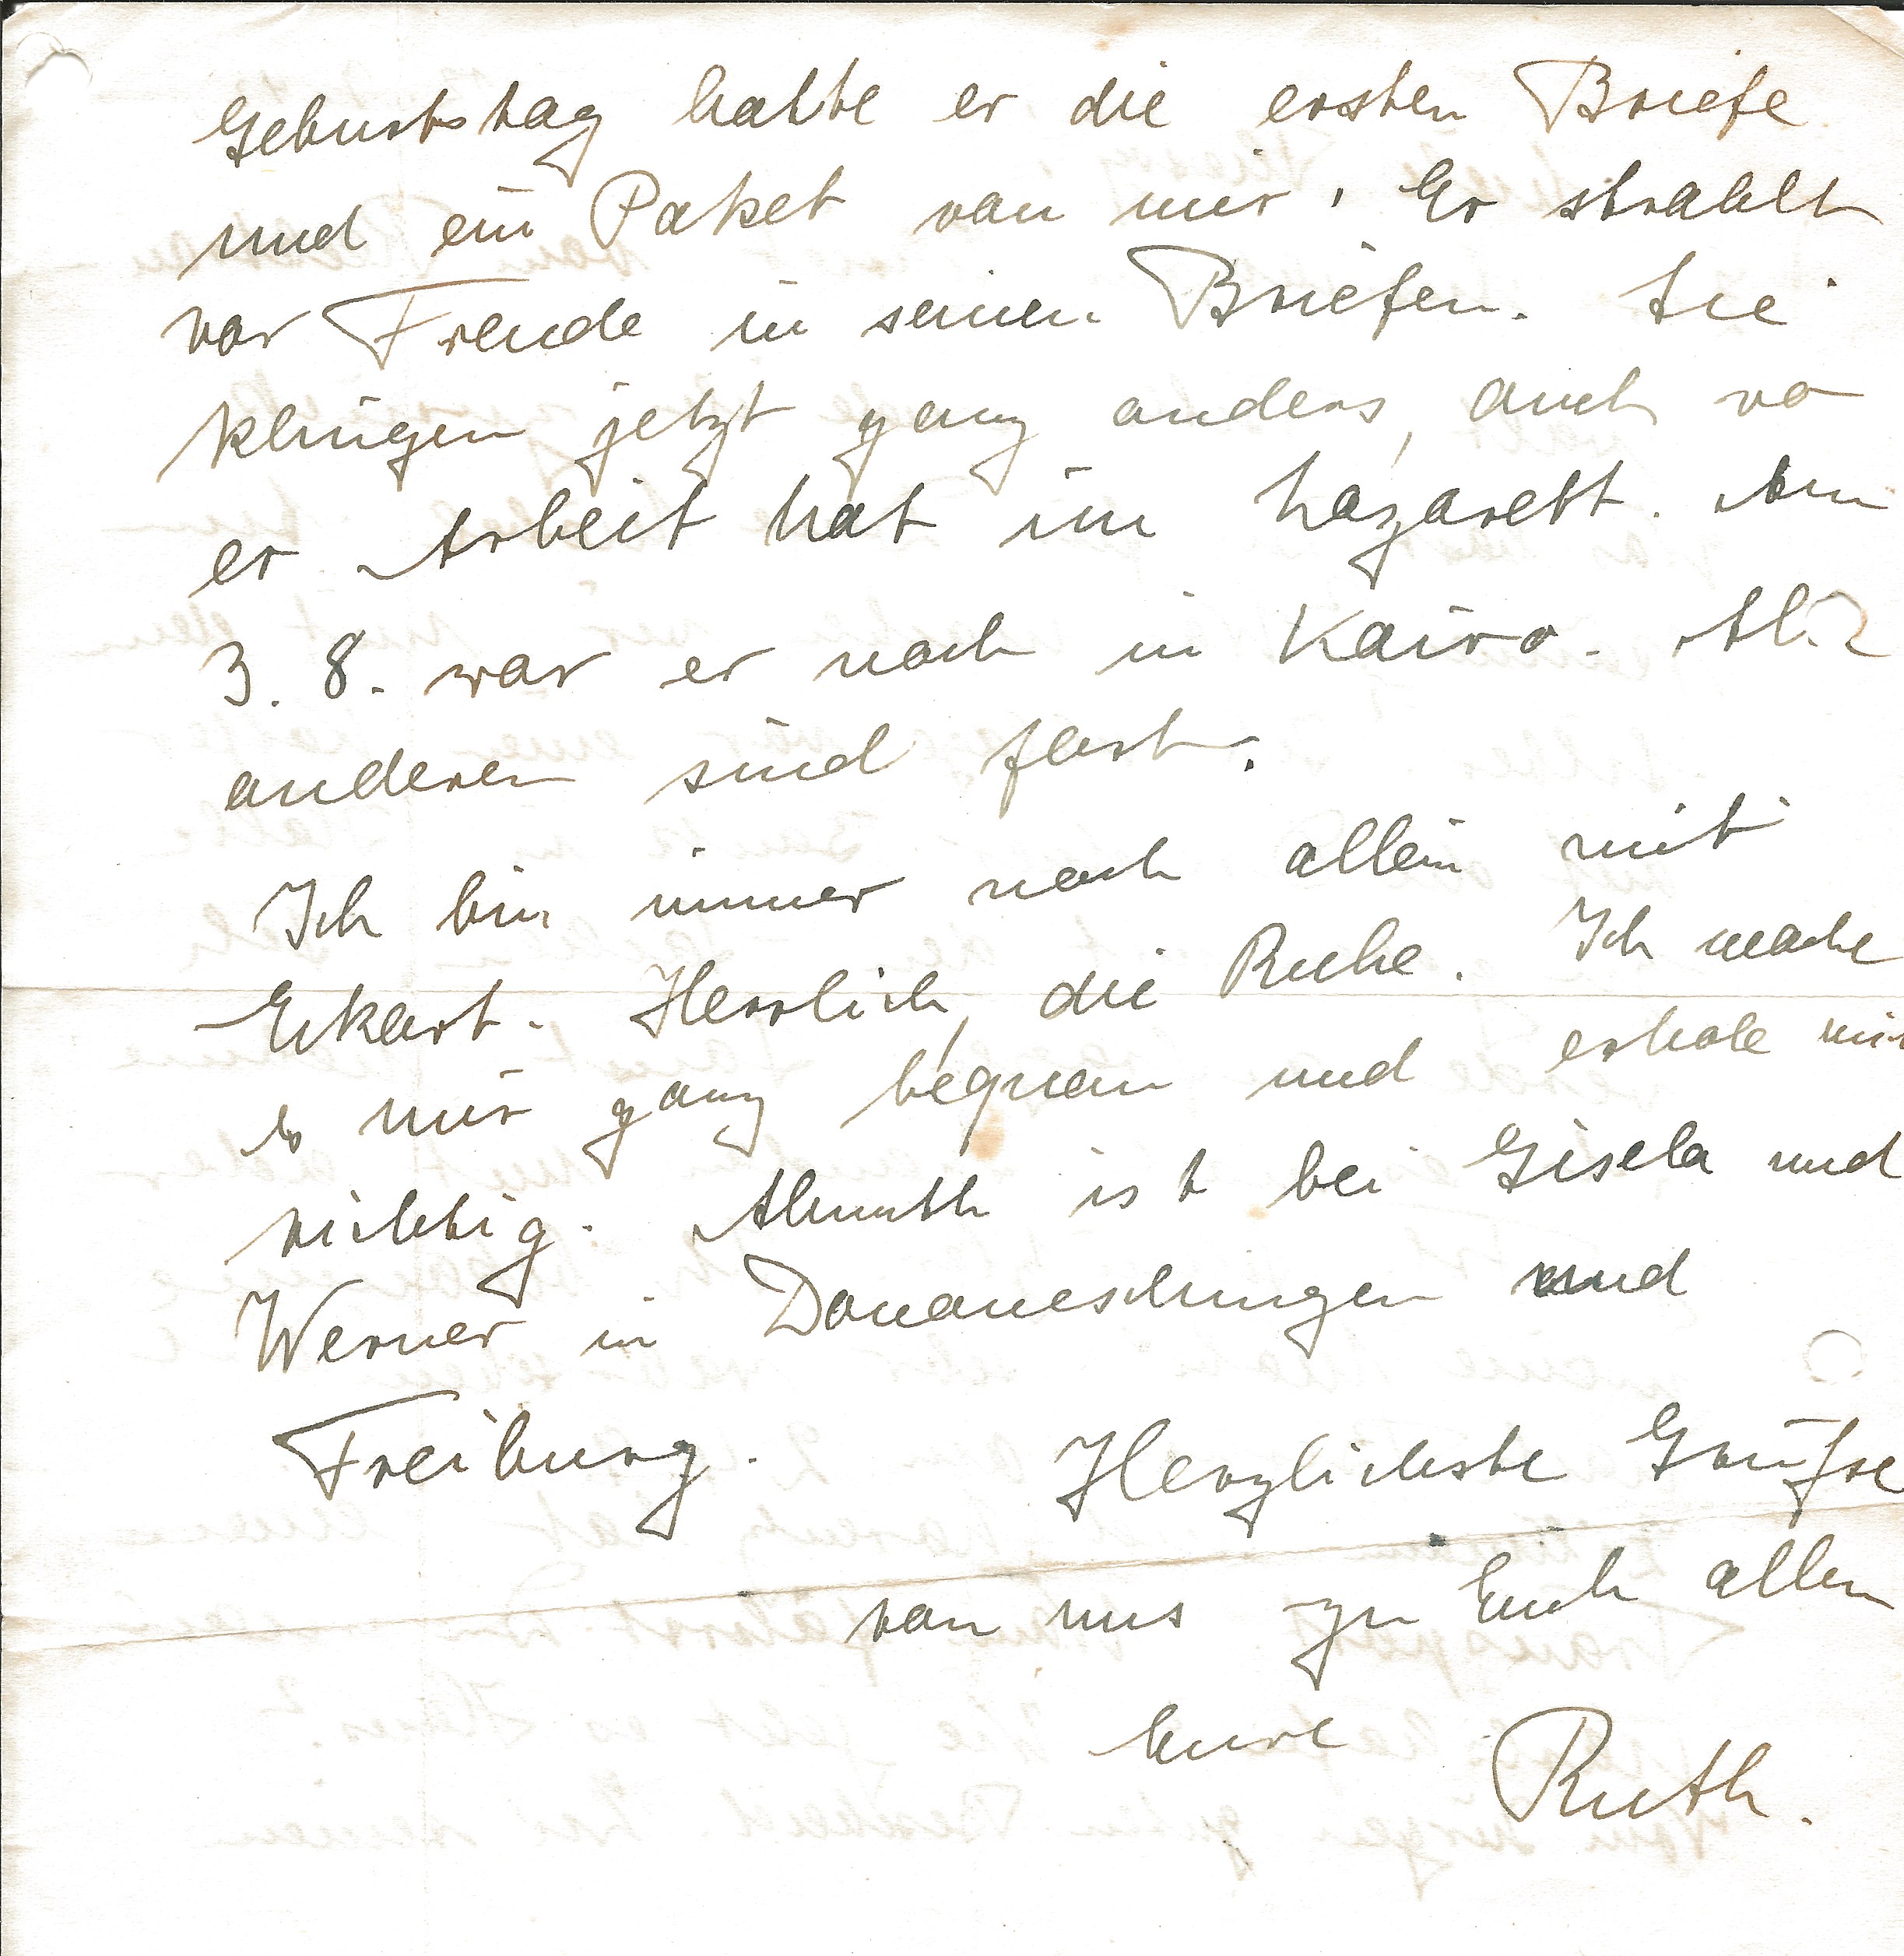 Geburtstag hatte er die ersten Briefe
und ein Paket von mir. Er strahlt
vor Freude in seinen Briefen. Sie
klingen jetzt ganz anders, auch wo
er Arbeit hat im Lazarett. Am
3. 8. war er noch in Kairo. All
anderen sind fort.
Ich bin immer noch allein mit
Eckart. Herrlich, die Ruhe. Ich mache
es mir ganz bequem und erhole mich
richtig. Almuth ist bei Gisela und
Werner in Donaueschingen und
Freiburg. Herzlichste Grüße
von uns zu Euch allen
Eure Ruth.